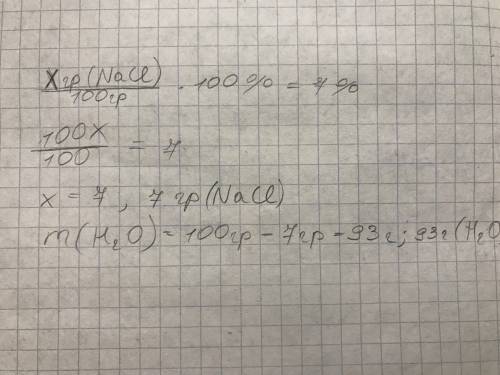 X гр (NaCl) / 100 гр · 100% = 7%
100x / 100 = 7
x = 7, 7 гр (NaCl)
m(H₂O) = 100гр - 7гр - 93г; 93г (H₂O